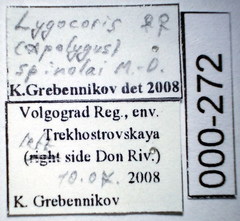 Lygocoris ♀♀
(Apolygus)
spinolai M.-D.
K.Grebennikov det 2008
Volgograd Reg., env.
Trekhostrovskaya
left
(right side Don Riv.)
10.07. 2008
K. Grebennikov
000-272